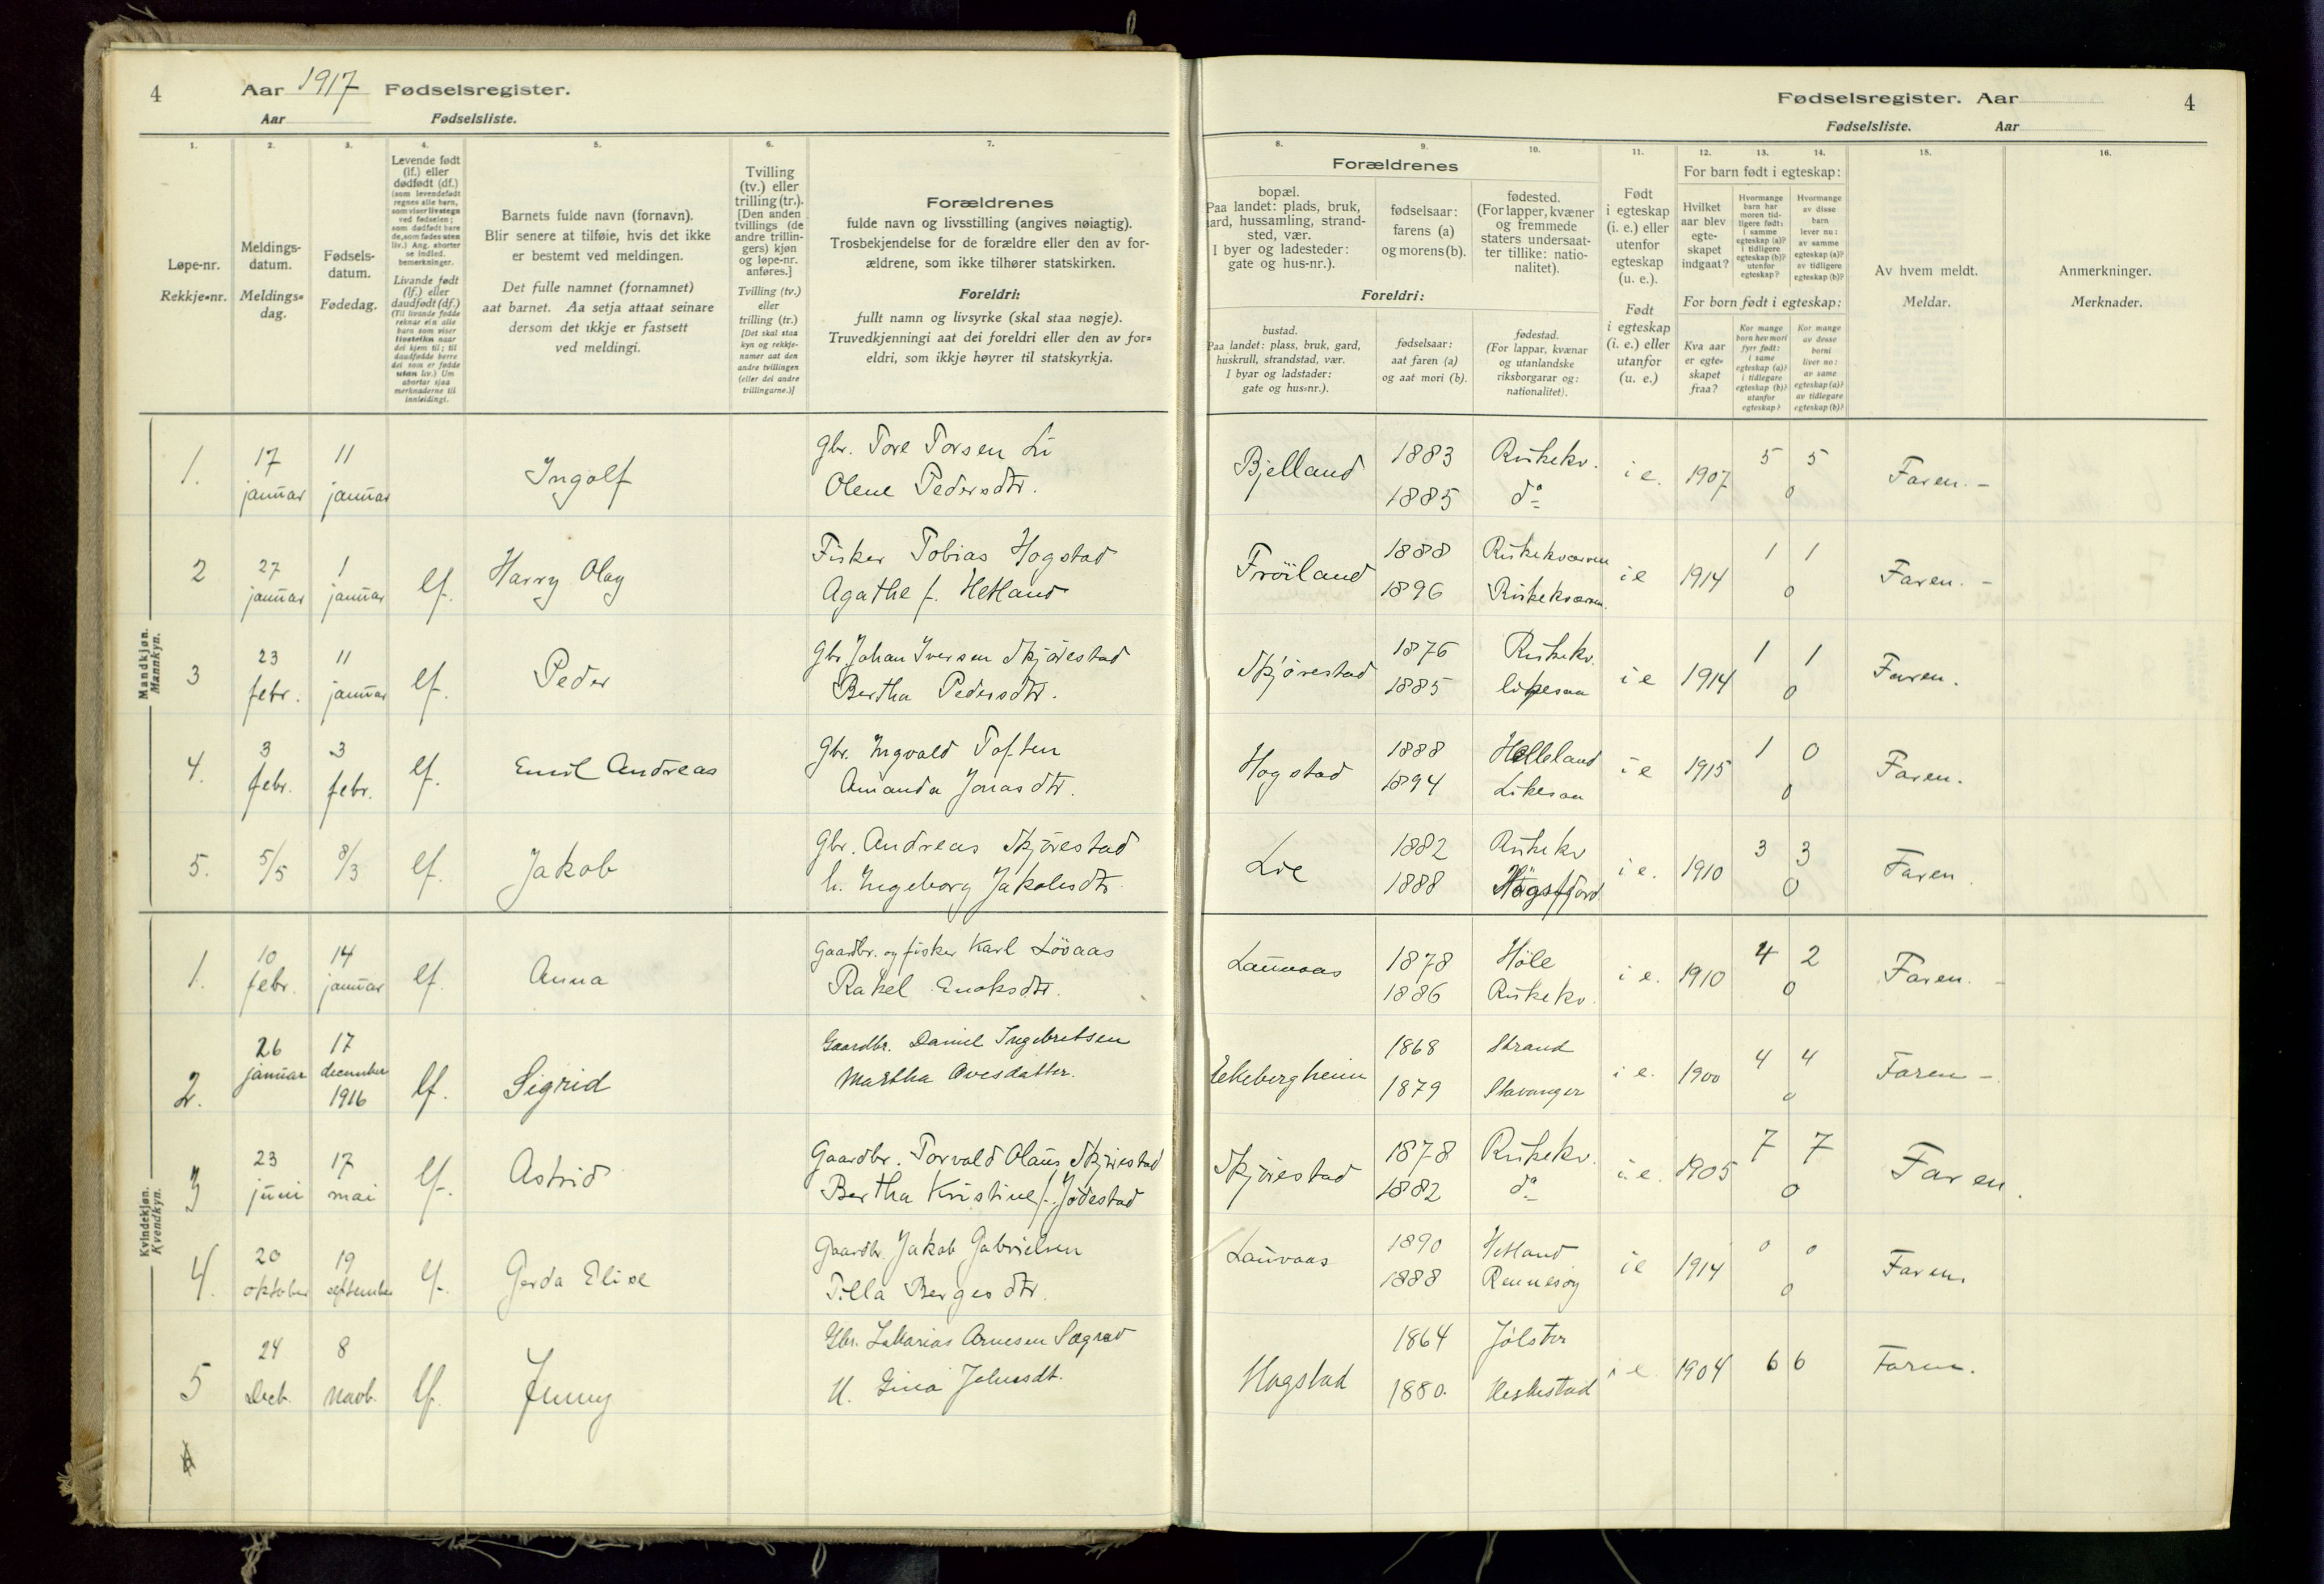 4
Aar 1917 Fødselsregister.
Aar Fødselsliste.
1.
2.
3.
4.
5.
6.
7.
Løpe-nr.
Rekkje-nr.
Meldings-
datum.
Meldings-
dag.
Fødsels-
datum.
Fødedag.
Levende født
(lf.) eller
dødfødt (df.)
(som levendefødt
regnes alle barn,
som viser livstegn
ved fødselen;
som dødfødt bare
de, som fødes uten
liv.) Ang. aborter
se indled.
bemerkninger.
Livande født
(lf.) eller
daudfødt (df.)
(Til livande fødde
reknar ein alle
born som viser
livsteikn naar
dei kjem til; til
daudfødde berre
dei som er fødde
utan liv.) Um
abortar sjaa
merknaderne til
innleidingi.
Barnets fulde navn (fornavn).
Blir senere at tilføie, hvis det ikke
er bestemt ved meldingen.
Det fulle namnet (fornamnet)
aat barnet. Aa setja attaat seinare
dersom det ikkje er fastsett
ved meldingi.
Tvilling
(tv.) eller
trilling (tr.).
[Den anden
tvillings (de
andre trillin-
gers) kjøn
og løpe-nr.
anføres.]
Tvilling (tv.)
eller
trilling (tr.)
[Det skal staa
kyn og rekkje-
numer aat den
andre tvillingen
(eller dei andre
trillingarne.)]
Forældrenes
fulde navn og livsstilling (angives nøiagtig).
Trosbekjendelse for de forældre eller den av for-
ældrene, som ikke tilhører statskirken.
Foreldri:
fullt namn og livsyrke (skal staa nøgje).
Truvedkjenningi aat dei foreldri eller den av for-
eldri, som ikkje høyrer til statskyrkja.
Mandkjøn.
Mannkyn.
1. 17 januar 11 januar Ingolf Gbr. Tore Torsen Li
Olene Pedersdtr.
2 27 januar 1 januar lf. Harry Olay Fisker Tobias Hogstad
Agathe f. Hetland
3 23 febr. 11 januar lf. Peder Gbr Johan Iversen Skjörestad
Bertha Pedersdtr.
4. 3 febr. 3 febr. lf. Emil Andreas Gbr. Ingvald Toften
Amanda Jonasdtr.
5. 5/5 8/3 lf. Jakob Gbr. Andreas Skjörestad
h. Ingeborg Jakobsdtr.
Kvindekjøn.
Kvendkyn.
1. 10 febr. 14 januar lf. Anna Gaardbr. og fisker Karl Lövaas
Rakel Enoksdtr.
2. 26 januar 17 december 1916 lf. Sigrid Gaardbr. Daniel Ingebretsen
Martha Ovesdatter.
3 23 juni 17 mai lf. Astrid Gaardbr. Torvald Olaus Skjörestad
Bertha Kristine f. Jödestad
4. 20 oktober 19 september lf. Gerda Elise Gaardbr. Jakob Gabrielsen
Tilla Bergesdtr.
5 24 Decb. 8 Novb. lf. Jenny Gbr. Zakarias Arnesen
H. Gina
Fødselsregister. Aar
4
Fødselsliste. Aar
8.
9.
10.
11.
12.
13.
14.
15.
16.
Forældrenes
bopæl.
Paa landet: plads, bruk,
gard, hussamling, strand-
sted, vær.
I byer og ladesteder:
gate og hus-nr.).
fødselsaar:
farens (a)
og morens (b).
fødested.
(For lapper, kvæner
og fremmede
staters undersaat-
ter tillike: natio-
nalitet).
Foreldri:
bustad.
Paa landet: plass, bruk, gard,
huskrull, strandstad, vær.
I byar og ladstader:
gate og hus-nr.).
fødselsaar:
aat faren (a)
og aat mori (b).
fødestad.
(For lappar, kvænar
og utanlandske
riksborgarar og:
nationalitet).
Født
i egteskap
(i. e.) eller
utenfor
egteskap
(u. e.).
Født
i egteskap
(i. e.) eller
utanfor
egteskap
(u. e.)
For barn født i egteskap:
Hvilket
aar blev
egte-
skapet
indgaat?
Hvormange
barn har
moren tid-
ligere født:
i samme
egteskap (a)?
i tidligere
egteskap (b)?
utenfor
egteskap?
Hvormange
av disse
barn
lever nu:
av samme
egteskap (a)?
av tidligere
egteskap (b)?
For born født i egteskap:
Kva aar
er egte-
skapet
fraa?
Kor mange
born hev mori
fyrr født:
i same
egteskap (a)?
i tidlegare
egteskap (b)?
utanfor
egteskap?
Kor mange
av desse
borni
liver no:
av same
egteskap (a)?
av tidlegare
egteskap (b)?
Av hvem meldt.
Meldar.
Anmerkninger.
Merknader.
Bjelland 1883 Riskekv. i e. 1907 5 5 Faren. -
1885 do 0
Fröiland 1888 Riskekværven i e 1914 1 1 Faren. -
1896 Riskekværven. 0
Skjörestad 1876 Riskekv. i e 1914 1 1 Faren.
1885 0
Hogstad 1888 Helleland i e 1915 1 0 Faren.
1894 0
Lie 1882 Riskekv i e. 1910 3 3 Faren.
1888 Högsfjord. 0
Lauvaas 1878 Höle i e. 1910 4 2 Faren. -
1886 Riskekv. 0
Ekeberg heim 1868 Strand i e. 1900 4 4 Faren -
1879 Stavanger 0
Skjörestad 1878 Riskekv. i e. 1905 7 7 Faren.
1882 do 0
Lauvaas 1890 Hetland i e 1914 0 0 Faren.
1888 Rennesöy 0
Hogstad 1864 Jölster i e. 1904 6 6 Faren.
1880. Heskestad